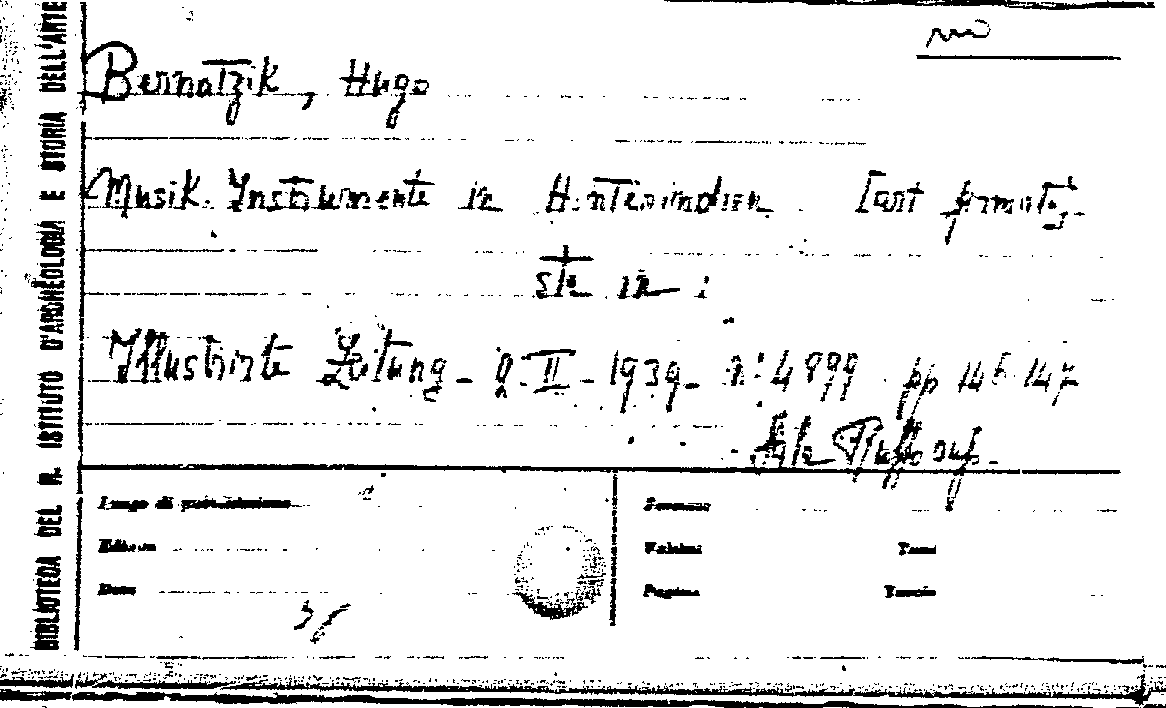 BIBLIOTECA DEL R. ISTITUTO D'ARCHEOLOGIA E STORIA DELL'ARTE
Bernatzik, Hugo
Musik. Instrumente in Hinterindien [art
in :
Illustrirte Zeitung - 2-II-1939- n° 4899 pp 146-147
Luogo di pubblicazione
Editore
Data
Formato
Volumi Tomi
Pagine Tavole